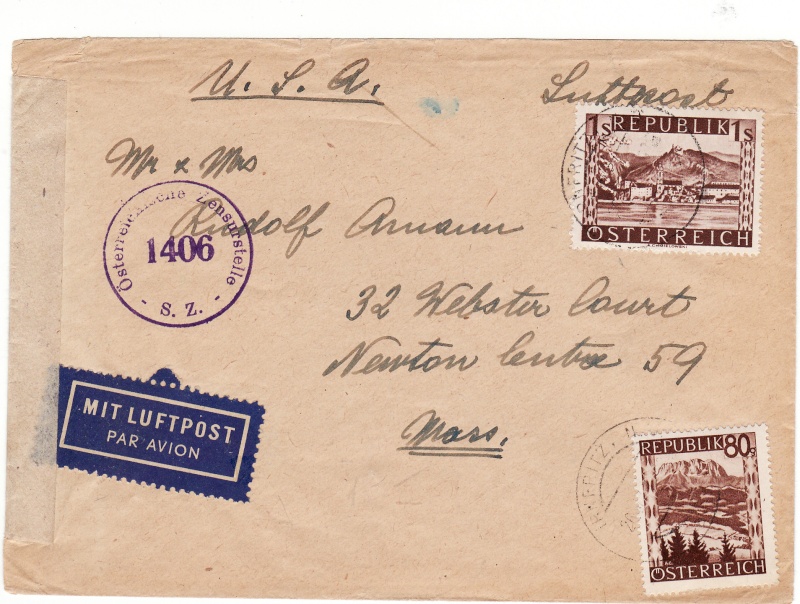 U. S. A.
Luftpost
1s REPUBLIK 1s
ÖSTERREICH
Mr & Mrs
Rudolf Amann
Österreichische Zensurstelle
1406
- S. Z. -
32 Webster Court
Newton Centre 59
Mass.
MIT LUFTPOST
PAR AVION
REPUBLIK 80g
ÖSTERREICH